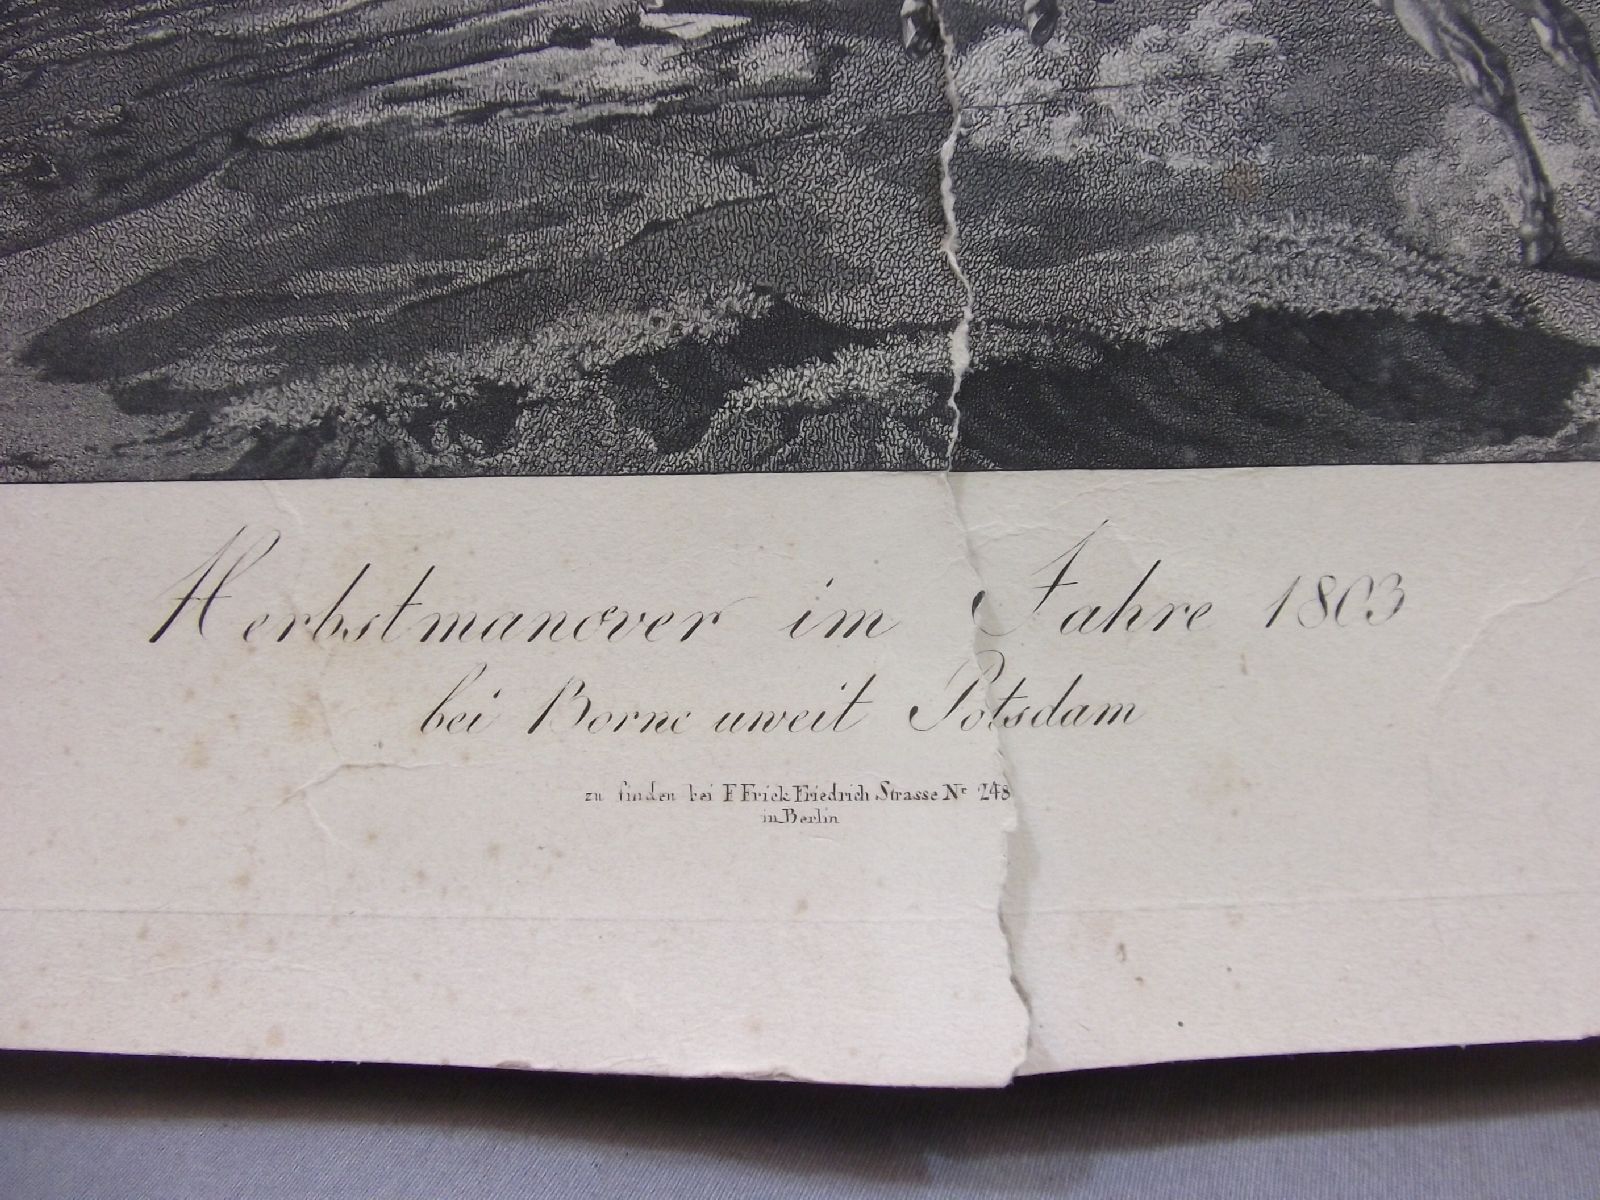 Herbstmanœver im Jahre 1803
bei Borne unweit Potsdam
zu finden bei F Frick Friedrich Strasse Nr 248
in Berlin